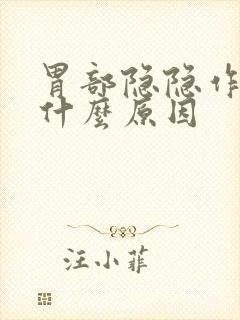 胃部隐隐作
什麽原因
汪小菲